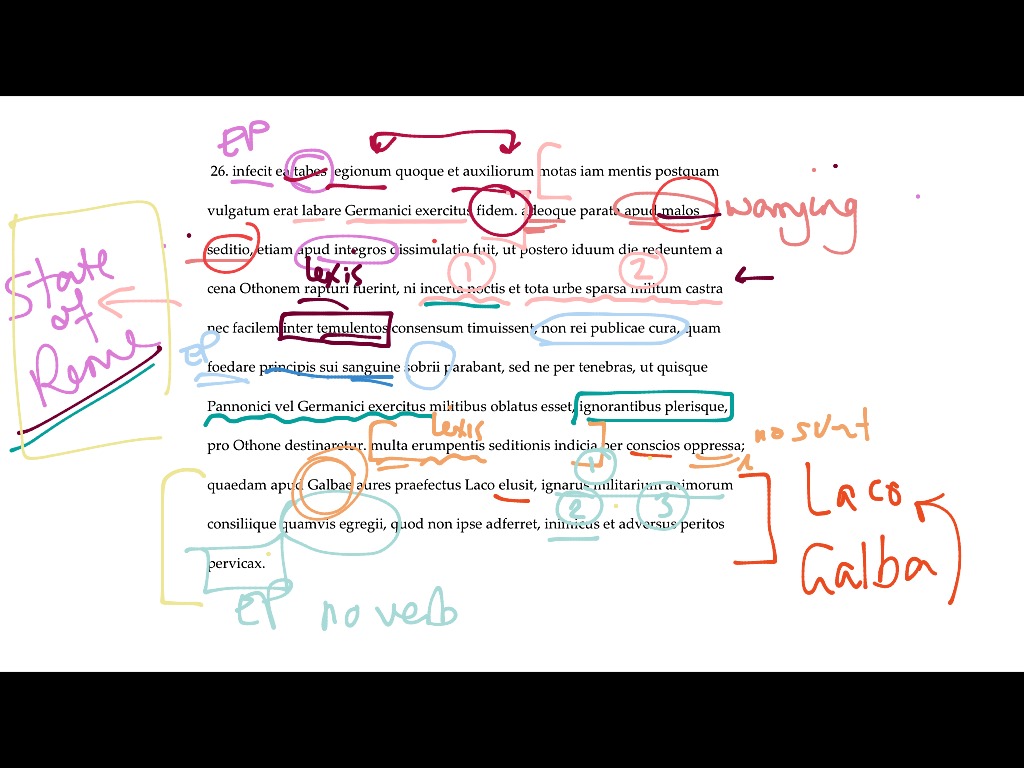 EP
26. infecit ea tabes legionum quoque et auxiliorum motas iam mentis postquam
vulgatum erat labare Germanici exercitus fidem. adeoque parata apud malos warrying
seditio, etiam apud integros dissimulatio fuit, ut postero iduum die redeuntem a
State of Rome
lexis 1 2
cena Othonem rapturi fuerint, ni incerta noctis et tota urbe sparsa militum castra
nec facilem inter temulentos consensum timuissent, non rei publicae cura, quam
EP
foedare principis sui sanguine sobrii parabant, sed ne per tenebras, ut quisque
Pannonici vel Germanici exercitus militibus oblatus esset, ignorantibus plerisque,
lexis no sunt
pro Othone destinaretur. multa erumpentis seditionis indicia per conscios oppressa;
1
quaedam apud Galbae aures praefectus Laco elusit, ignarus militarium animorum
Laco
2 3
consiliique quamvis egregii, quod non ipse adferret, inimicus et adversus peritos
pervicax.
Galba
EP no verb